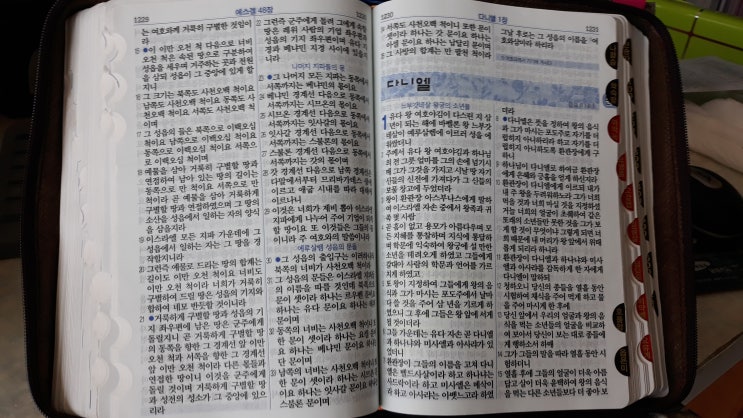 1229 에스겔 48장
는 여호와께 거룩히 구별한 것임이
라
15 ●이 이만 오천 척 다음으로 너비
오천 척은 속된 땅으로 구분하여
성읍을 세우며 거주하는 곳과 전원
을 삼되 성읍이 그 중앙에 있게 할
지니
16 그 크기는 북쪽도 사천오백 척이요
남쪽도 사천오백 척이요 동쪽도 사
천오백 척이요 서쪽도 사천오백 척
이며
17 그 성읍의 들은 북쪽으로 이백오십
척이요 남쪽으로 이백오십 척이요
동쪽으로 이백오십 척이요 서쪽으
로 이백오십 척이며
18 예물을 삼아 거룩히 구별할 땅과
연접하여 남아 있는 땅의 길이는
동쪽으로 만 척이요 서쪽으로 만
척이라 곧 예물을 삼아 거룩하게
구별할 땅과 연접하였으며 그 땅의
소산을 성읍에서 일하는 자의 양식
을 삼을지라
19 이스라엘 모든 지파 가운데에 그
성읍에서 일하는 자는 그 땅을 경
작할지니라
20 그런즉 예물로 드리는 땅의 합계는
길이도 이만 오천 척이요 너비도
이만 오천 척이라 너희가 거룩히
구별하여 드릴 땅은 성읍의 기지와
합하여 네모 반듯할 것이니라
21 ●거룩하게 구별할 땅과 성읍의 기
지 좌우편에 남은 땅은 군주에게
돌릴지니 곧 거룩하게 구별할 땅
의 동쪽을 향한 그 경계선 앞 이만
오천 척과 서쪽을 향한 그 경계선
앞 이만 오천 척이라 다른 몫들과
연접한 땅이니 이것을 군주에게
돌릴 것이며 거룩하게 구별할 땅
과 성전의 성소가 그 중앙에 있으
리라
22 그런즉 군주에게 돌려 그에게 속할
땅은 레위 사람의 기업 좌우편과
성읍의 기지 좌우편이며 유다 지
경과 베냐민 지경 사이에 있을지
니라
나머지 지파들의 몫
23 ●그 나머지 모든 지파는 동쪽에서
서쪽까지는 베냐민의 몫이요
24 베냐민 경계선 다음으로 동쪽에서
서쪽까지는 시므온의 몫이요
25 시므온 경계선 다음으로 동쪽에서
서쪽까지는 잇사갈의 몫이요
26 잇사갈 경계선 다음으로 동쪽에서
서쪽까지는 스불론의 몫이요
27 스불론 경계선 다음으로 동쪽에서
서쪽까지는 갓의 몫이며
28 갓 경계선 다음으로 남쪽 경계선은
다말에서부터 므리바가데스 샘에
이르고 애굽 시내를 따라 대해에
이르나니
29 이것은 너희가 제비 뽑아 이스라엘
지파에게 나누어 주어 기업이 되게
할 땅이요 또 이것들은 그들의 몫
이니라 주 여호와의 말씀이니라
예루살렘 성읍의 문들
30 ●그 성읍의 출입구는 이러하니라
북쪽의 너비가 사천오백 척이라
31 그 성읍의 문들은 이스라엘 지파들
의 이름을 따를 것인데 북쪽으로
문이 셋이라 하나는 르우벤 문이요
하나는 유다 문이요 하나는 레위
문이며
32 동쪽의 너비는 사천오백 척이니 또한
문이 셋이라 하나는 요셉 문이
요 하나는 베냐민 문이요 하나는
단 문이며
33 남쪽의 너비는 사천오백 척이니 또한
문이 셋이라 하나는 시므온 문
이요 하나는 잇사갈 문이요 하나는
스불론 문이며
1230 다니엘 1장 1231
34 서쪽도 사천오백 척이니 또한 문이
셋이라 하나는 갓 문이요 하나는
아셀 문이요 하나는 납달리 문이며
35 그 사방의 합계는 만 팔천 척이라
그날 후로는 그 성읍의 이름을 여
호와삼마라 하리라
다니엘
느부갓네살 왕궁의 소년들
1 유다 왕 여호야김이 다스린 지 삼
년이 되는 해에 바벨론 왕 느부갓
네살이 예루살렘에 이르러 성을 에
워쌌더니
2 주께서 유다 왕 여호야김과 하나님
의 전 그릇 얼마를 그의 손에 넘기시
매 그가 그것을 가지고 시날 땅 자기
신들의 신전에 가져다가 그 신들의
보물 창고에 두었더라
3 왕이 환관장 아스부나스에게 말하
여 이스라엘 자손 중에서 왕족과 귀
족 몇 사람
4 곧 흠이 없고 용모가 아름다우며 모
든 지혜를 통찰하며 지식에 통달하
며 학문에 익숙하여 왕궁에 설 만한
소년을 데려오게 하였고 그들에게
갈대아 사람의 학문과 언어를 가르
치게 하였고
5 또 왕이 지정하여 그들에게 왕의 음
식과 그가 마시는 포도주에서 날마
다 쓸 것을 주어 삼 년을 기르게 하
였으니 그 후에 그들은 왕 앞에 서게
될 것이더라
6 그들 가운데는 유다 자손 곧 다니엘
과 하나냐와 미사엘과 아사랴가 있
었더니
7 환관장이 그들의 이름을 고쳐 다니
엘은 벨드사살이라 하고 하나냐는
사드락이라 하고 미사엘은 메삭이
라 하고 아사랴는 아벳느고라 하였
더라
8 ●다니엘은 뜻을 정하여 왕의 음식
과 그가 마시는 포도주로 자기를 더
럽히지 아니하리라 하고 자기를 더
럽히지 아니하도록 환관장에게 구
하니
9 하나님이 다니엘로 하여금 환관장
에게 은혜와 긍휼을 얻게 하신지라
10 환관장이 다니엘에게 이르되 내가
내 주 왕을 두려워하노라 그가 너희
먹을 것과 너희 마실 것을 지정하셨
거늘 너희의 얼굴이 초췌하여 같은
또래의 소년들만 못한 것을 그가 보
게 할 것이 무엇이냐 그렇게 되면 너
희 때문에 내 머리가 왕 앞에서 위태
롭게 되리라 하니라
11 환관장이 다니엘과 하나냐와 미사
엘과 아사랴를 감독하게 한 자에게
다니엘이 말하되
12 청하오니 당신의 종들을 열흘 동안
시험하여 채식을 주어 먹게 하고 물
을 주어 마시게 한 후에
13 당신 앞에서 우리의 얼굴과 왕의 음
식을 먹는 소년들의 얼굴을 비교하
여 보아서 당신이 보는 대로 종들에
게 행하소서 하매
14 그가 그들의 말을 따라 열흘 동안 시
험하더니
15 열흘 후에 그들의 얼굴이 더욱 아름
답고 살이 더욱 윤택하여 왕의 음식
을 먹는 다른 소년들보다 더 좋아 보